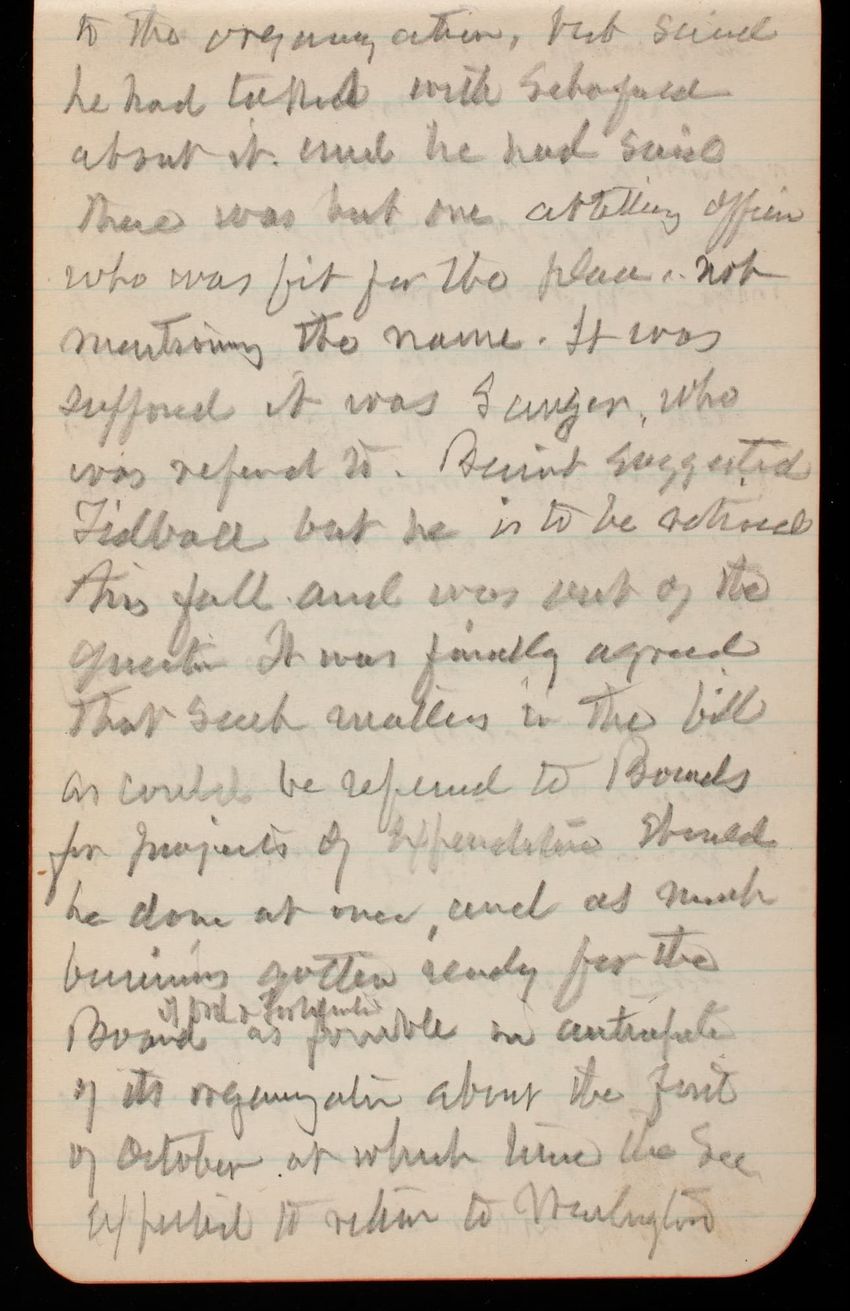 to the organization, but said
he had talked with Schofield
about it. and he had said
there was but one artillery officer
who was fit for the place. not
mentioning the name. It was
supposed it was Sanger, who
was referred to. Benét suggested
Tidball but he is to be retired
this fall and was out of the
question It was finally agreed
that such matters in the bill
as could be referred to Boards
for projects of Expenditure should
be done at once, and as much
business gotten ready for the
of Ord & Fortification
Board as possible in anticipation
of its organization about the first
of October at which time the Sec
expected to return to Washington